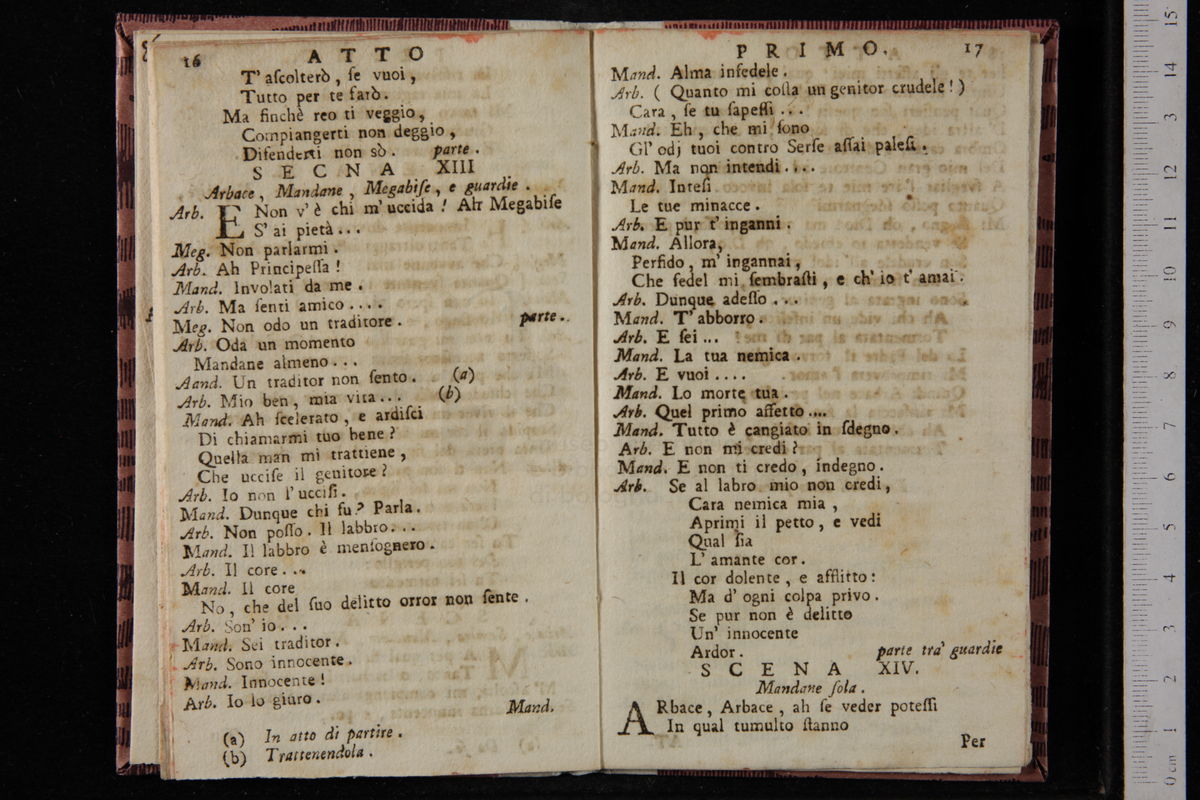 16 ATTO
T' aſcolterò, ſe vuoi,
Tutto per te farò.
Ma finchè reo ti veggio,
Compiangerti non deggio,
Difenderti non sò. parte.
SECNA XIII
Arbace, Mandane, Megabiſe, e guardie.
Arb. E Non v' è chi m' uccida! Ah Megabiſe
S' ai pietà...
Meg. Non parlarmi.
Arb. Ah Principeſſa!
Mand. Involati da me.
Arb. Ma ſenti amico....
Meg. Non odo un traditore. parte.
Arb. Oda un momento
Mandane almeno...
Aand. Un traditor non ſento. (a)
Arb. Mio ben, mia vita... (b)
Mand. Ah ſcelerato, e ardiſci
Di chiamarmi tuo bene?
Quella man mi trattiene,
Che ucciſe il genitore?
Arb. Io non l' ucciſi.
Mand. Dunque chi fu? Parla.
Arb. Non poſſo. Il labbro...
Mand. Il labbro è menſognero.
Arb. Il core...
Mand. Il core
No, che del ſuo delitto orror non ſente.
Arb. Son' io...
Mand. Sei traditor.
Arb. Sono innocente.
Mand. Innocente!
Arb. Io lo giuro.
Mand.
(a) In atto di partire.
(b) Trattenendola.
PRIMO. 17
Mand. Alma infedele.
Arb. ( Quanto mi coſta un genitor crudele! )
Cara, ſe tu ſapeſſi...
Mand. Eh, che mi ſono
Gl' odj tuoi contro Serſe aſſai paleſi.
Arb. Ma non intendi....
Mand. Inteſi
Le tue minacce.
Arb. E pur t' inganni.
Mand. Allora,
Perfido, m' ingannai,
Che fedel mi ſembraſti, e ch' io t' amai.
Arb. Dunque adeſſo...
Mand. T' abborro.
Arb. E ſei...
Mand. La tua nemica.
Arb. E vuoi....
Mand. Lo morte tua.
Arb. Quel primo affetto....
Mand. Tutto è cangiato in ſdegno.
Arb. E non mi credi?
Mand. E non ti credo, indegno.
Arb. Se al labro mio non credi,
Cara nemica mia,
Aprimi il petto, e vedi
Qual ſia
L' amante cor.
Il cor dolente, e afflitto:
Ma d' ogni colpa privo.
Se pur non è delitto
Un' innocente
Ardor. parte tra' guardie
SCENA XIV.
Mandane ſola.
ARbace, Arbace, ah ſe veder poteſſi
In qual tumulto ſtanno
Per